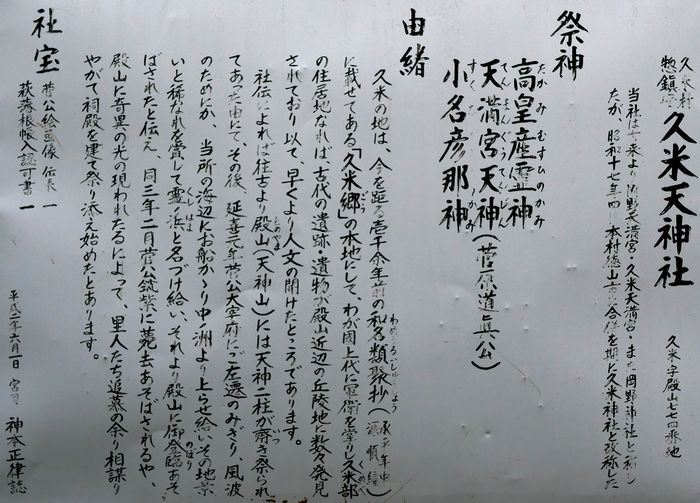 久米村
惣鎮守 久米天神社 久米字殿山七七四番地
当社は古来より岡野天満宮・久米天満宮・また岡野神社と称し
たが、昭和十七年四月本村徳山市に合併を期に久米神社と改称した
祭神
たかみむすひのかみ
高皇産霊神
てんまんぐうてんじん
天満宮天神(菅原道真公)
すくなひこなのかみ
小名彦那神
由緒
久米の地は、今を距る壱千余年前の和名類聚抄(承平年中源順編)
に載せてある「久米郷」の本地にして、わが国上代に軍衛を掌り久米部
の住居地なれば、古代の遺跡・遺物が殿山近辺の丘陵地に数久発見
されており以て、早くより人文の開けたところであります。
社伝によれば往古より殿山(天神山)には天神二柱が齋き祭られ
てあった由にて、その後、延喜元年菅公大宰府にご左遷のみぎり、風波
のためにか、当所の海辺にお船かゝり中ノ洲より上らせ給い、その地景
いと稀なれを賞して霊ノ浜と名づけ給い、それより殿山に御登臨あそ
ばされたと伝え、同三年二月菅公筑紫に薨去あそばされるや、
殿山に奇里の光の現われたるによって、里人たち追慕の余り相謀り
やがて祠殿を建て祭り添え始めたとあります。
社宝
菅公絵画像 伝来 一
萩藩根帳入認可書 一
平成二年六月一日 宮司 神本正律誌